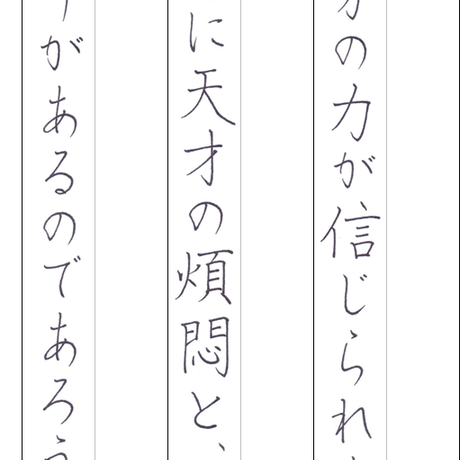 の力が信じられ
に天才の煩悶と、
があるのであろ